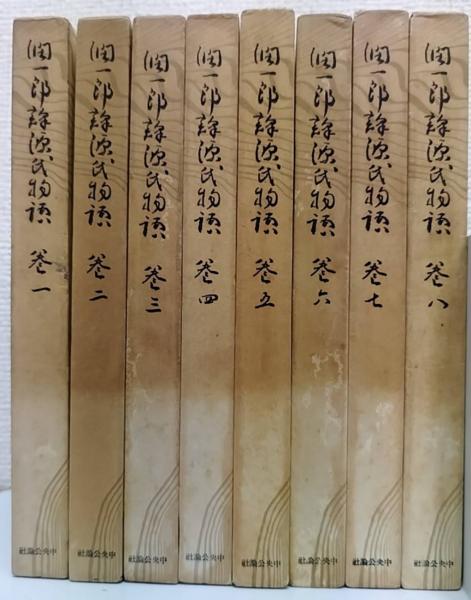 潤一郎譯源氏物語 巻一
中央公論社
潤一郎譯源氏物語 巻二
中央公論社
潤一郎譯源氏物語 巻三
中央公論社
潤一郎譯源氏物語 巻四
中央公論社
潤一郎譯源氏物語 巻五
中央公論社
潤一郎譯源氏物語 巻六
中央公論社
潤一郎譯源氏物語 巻七
中央公論社
潤一郎譯源氏物語 巻八
中央公論社